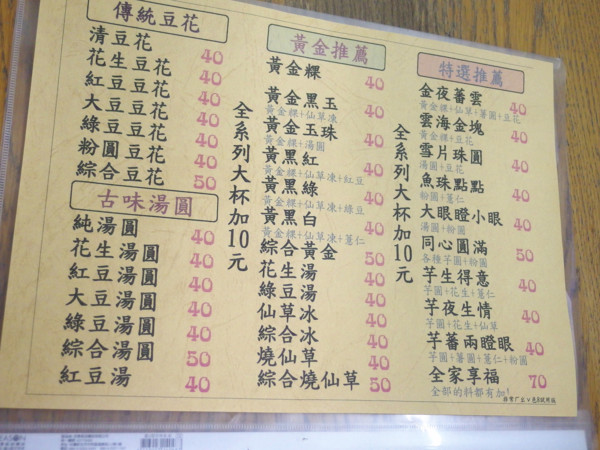 傳統豆花
清豆花 40
花生豆花 40
紅豆豆花 40
大豆豆花 40
綠豆豆花 40
粉圓豆花 40
綜合豆花 50
古味湯圓
純湯圓 40
花生湯圓 40
紅豆湯圓 40
大豆湯圓 40
綠豆湯圓 40
綜合湯圓 50
紅豆湯 40
全系列大杯加10元
黃金推薦
黃金粿 40
黃金黑玉 40
黃金粿+仙草凍
黃金玉珠 40
黃金粿+湯圓
黃黑紅 40
黃金粿+仙草凍+紅豆
黃黑綠 40
黃金粿+仙草凍+綠豆
黃黑白 40
黃金粿+仙草凍+薏仁
綜合黃金 50
花生湯 40
綠豆湯 40
仙草冰 40
綜合冰 40
燒仙草 40
綜合燒仙草 50
全系列大杯加10元
特選推薦
金夜蕃雲 40
黃金粿+仙草+薯圓+豆花
雲海金塊 40
黃金粿+豆花
雪片珠圓 40
湯圓+豆花
魚珠點點 40
粉圓+薏仁
大眼瞪小眼 40
湯圓+粉圓
同心圓滿 50
各種芋圓+粉圓
芋生得意 40
芋圓+花生+薏仁
芋夜生情 40
芋圓+花生+仙草
芋蕃兩瞪眼 40
芋圓+薯圓+薏仁+粉圓
全家享福 70
全部的料都有加!